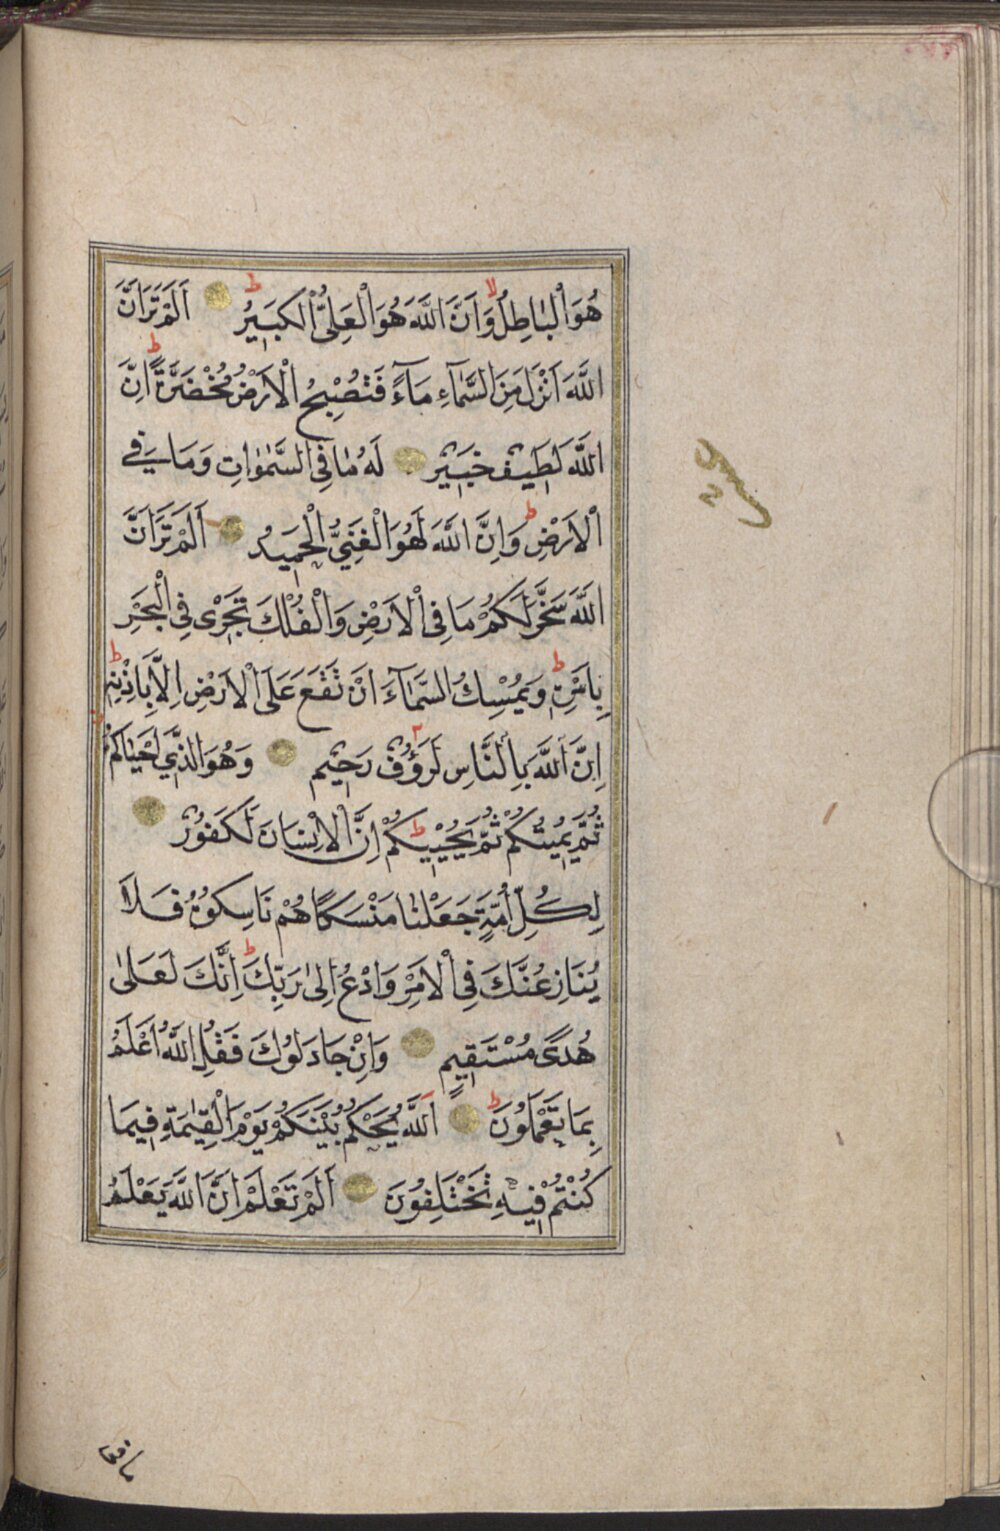 هُوَ الْبَاطِلُ وَاَنَّ اللّٰهَ هُوَ الْعَلِىُّ الْكَبِيرُ اَلَمْ تَرَ اَنَّ
اللّٰهَ اَنْزَلَ مِنَ السَّمَآءِ مَآءً فَتُصْبِحُ الْاَرْضُ مُخْضَرَّةً اِنَّ
اللّٰهَ لَطِيفٌ خَبِيرٌ لَهُ مَا فِى السَّمٰوَاتِ وَمَا فِى
الْاَرْضِ وَاِنَّ اللّٰهَ لَهُوَ الْغَنِيُّ الْحَمِيدُ اَلَمْ تَرَ اَنَّ
اللّٰهَ سَخَّرَ لَكُمْ مَا فِى الْاَرْضِ وَالْفُلْكَ تَجْرِى فِى الْبَحْرِ
بِاَمْرِهِ وَيُمْسِكُ السَّمَآءَ اَنْ تَقَعَ عَلَى الْاَرْضِ اِلَّا بِاِذْنِهِ
اِنَّ اللّٰهَ بِالنَّاسِ لَرَؤُفٌ رَحِيمٌ وَهُوَ الَّذِي اَحْيَاكُمْ
ثُمَّ يُمِيتُكُمْ ثُمَّ يُحْيِيكُمْ اِنَّ الْاِنْسَانَ لَكَفُورٌ
لِكُلِّ اُمَّةٍ جَعَلْنَا مَنْسَكًا هُمْ نَاسِكُوهُ فَلَا
يُنَازِعُنَّكَ فِى الْاَمْرِ وَادْعُ اِلٰى رَبِّكَ اِنَّكَ لَعَلٰى
هُدًى مُسْتَقِيمٍ وَاِنْ جَادَلُوكَ فَقُلِ اللّٰهُ اَعْلَمُ
بِمَا تَعْمَلُونَ اَللّٰهُ يَحْكُمُ بَيْنَكُمْ يَوْمَ الْقِيٰمَةِ فِيمَا
كُنْتُمْ فِيهِ تَخْتَلِفُونَ اَلَمْ تَعْلَمْ اَنَّ اللّٰهَ يَعْلَمُ